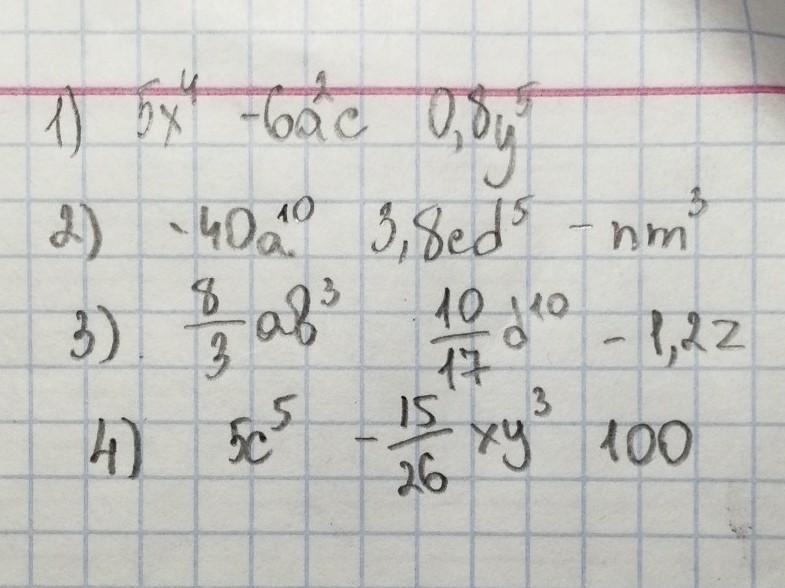 1) 5x⁴ -6a²c 0,8y⁵
2) -40a¹⁰ 3,8cd⁵ - nm³
3) 8/3 ab³ 10/17 d¹⁰ - 1,2z
4) 5c⁵ - 15/26 xy³ 100